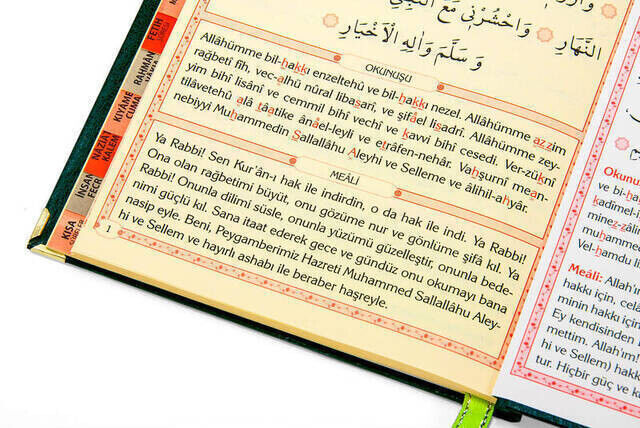 النَّهَارِ وَاحْشُرْنِي مَعَ النَّبِيِّ
وَسَلَّمَ وَاٰلِهِ الْاَخْيَارِ
OKUNUŞU
Allâhümme bil-hakkı enzeltehû ve bil-hakkı nezel. Allâhümme azzim
rağbetî fîh, vec-alhü nûral libasarî, ve şifâel lisadrî. Allâhümme zey-
yim bihî lisânî ve cemmil bihî vechî ve kavvi bihî cesedî. Ver-züknî
tilâvetehû alâ tâatike ânâel-leyli ve etrâfen-nehâr. Vahşurnî mean-
nebiyyi Muhammedin Sallallâhu Aleyhi ve Selleme ve âlihil-ahyâr.
MEÂLİ
Ya Rabbi! Sen Kur'ân-ı hak ile indirdin, o da hak ile indi. Ya Rabbi!
Ona olan rağbetimi büyüt, onu gözüme nur ve gönlüme şifâ kıl. Ya
Rabbi! Onunla dilimi süsle, onunla yüzümü güzelleştir, onunla bede-
nimi güçlü kıl. Sana itaat ederek gece ve gündüz onu okumayı bana
nasip eyle. Beni, Peygamberimiz Hazreti Muhammed Sallallâhu Aley-
hi ve Sellem ve hayırlı ashabı ile beraber haşreyle.
1
FETİH
RAHMÂN
KIYÂME
CUMA
NÂZİAT
KALEM
İNSAN
FECR
KISA
Okunu
ve bi-h
kadimel
minez-z
muhamm
Vel-hamdu l
Meâli: Allah'ı
hakkı için. cel
minin hakkı iç
Ey kendisinden
mettim. Allah'ım!
hi ve Sellem) hakk
tur. Hiçbir güç ve k